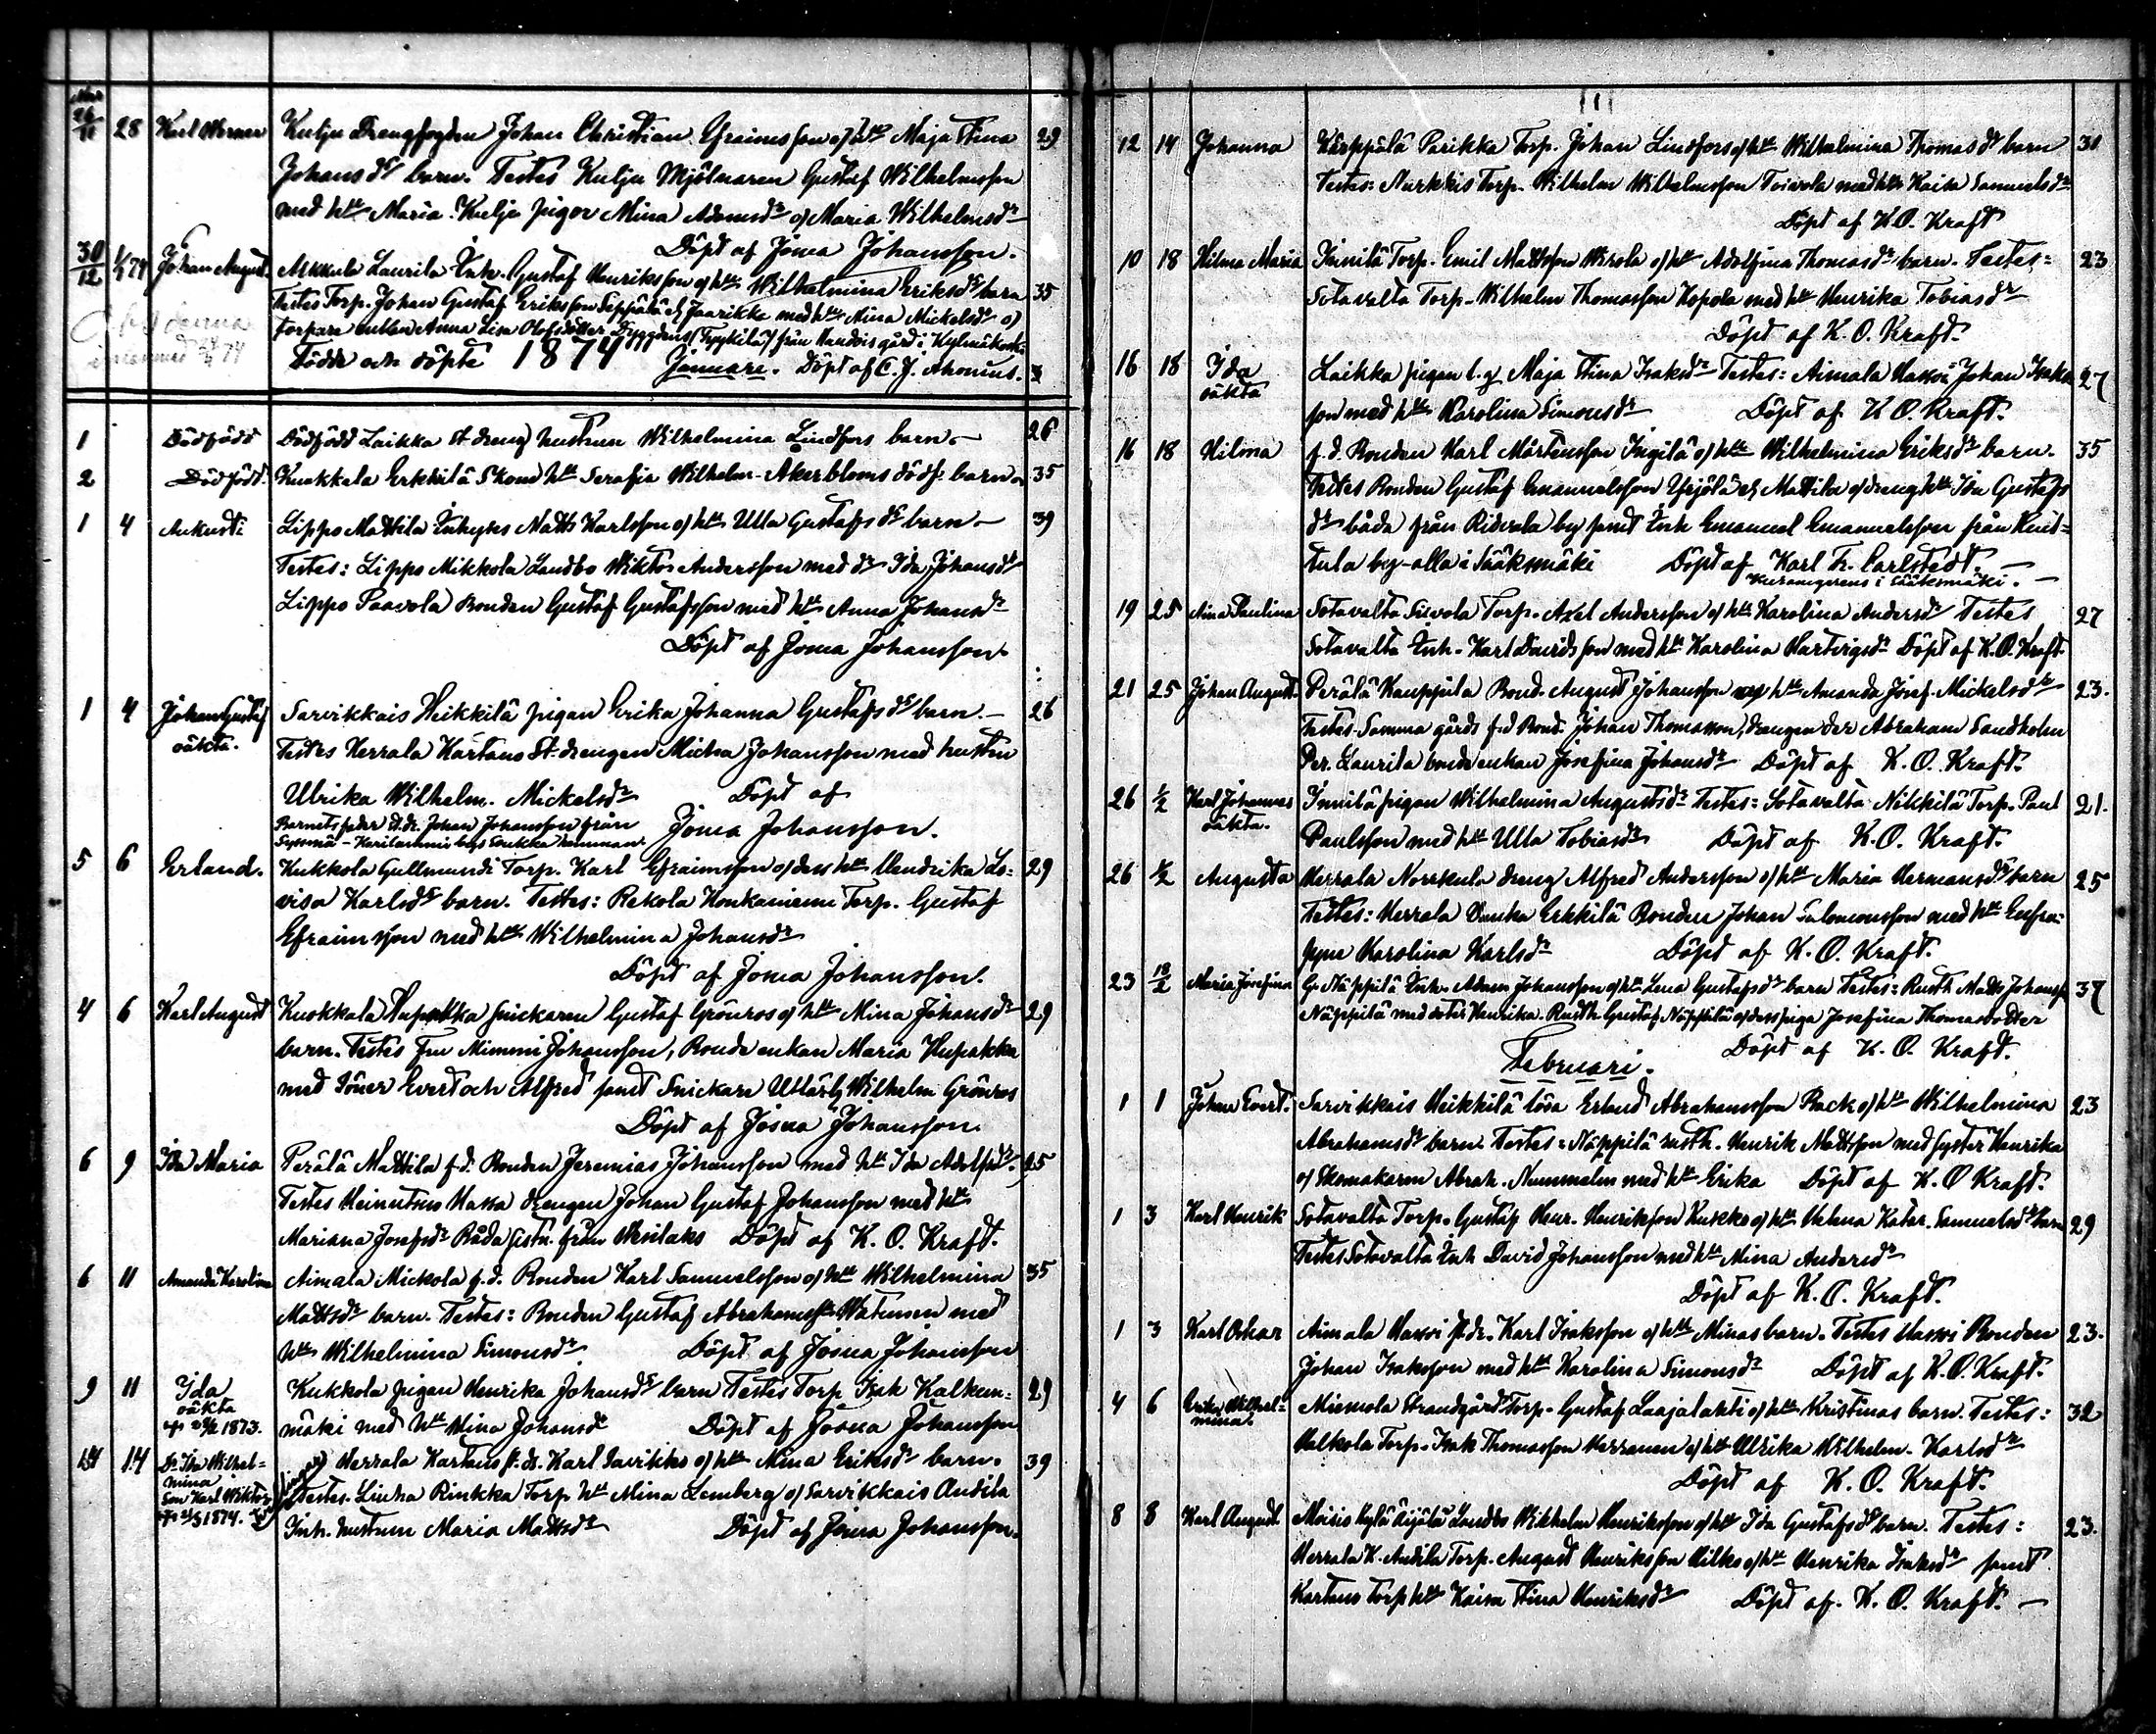 Nov
26/11 28 Karl Werner Kulju Drengfogden Johan Christian Efraimsson o hu Maja Stina 29
Johansdr barn. Testes Kulju Mjölnaren Gustaf Wilhelmsson
med hu Maria. Kulju pigor Mina Adamsdr o Maria Wilhelmsdr
Döpt af Josua Johansson.
30/12 1/1 74 Johan August. Akkula Laurila Inh. Gustaf Henriksson o hu Wilhelmina Eriksdr barn 35
Testes Torp. Johan Gustaf Eriksson Seppälä Jaarikko med hu Mina Mickelsdr o
torpare enkan Anna Lisa Olofsdotter från gård i Kylmäkoski
Födde och döpte 1874 Januari. Döpt af C. J. Ahonius.
1 Dödfödd Dödfödd Laikka St dreng hustrun Wilhelmina Lindfors barn — 26
2 Dödfödt. Kuokkala Erkkilä Skom hu Serafia Wilhelm. Åkerbloms dödf. barn 35
1 4 Aukusti Lippo Mattila Inhyses Matts Karlsson o hu Ulla Gustafsdr barn — 39
Testes: Lippo Mikkola Landbo Wiktor Andersson med dr Ida Johansdr
Lippo Paavola Bonden Gustaf Gustafsson med hu Anna Johansdr
Döpt af Josua Johansson.
1 4 Johan Gustaf Sarvikkais Heikkilä pigan Erika Johanna Gustafsdr barn. — 26
oäkta. Testes Herrala Kartano St. drengen Micha Johansson med hustru
Ulrika Wilhelm. Mickelsdr Döpt af
Barnets fader st. dr. Johan Johansson från Josua Johansson.
Sysmä
5 6 Erland. Kukkola Gullmunds Torp. Karl Efraimsson o dess hu Hendrika Lo= 29
visa Karlsdr barn. Testes: Rekola Honkaniemi Torp. Gustaf
Efraimsson med hu Wilhelmina Johansdr
Döpt af Josua Johansson.
4 6 Karl August Kuokkala Hupakka snickaren Gustaf Grönros o hu Mina Johansdr 29
barn. Testes Fru Mimmi Johansson, Bonde enkan Maria Hupakka
med söner Evert och Alfred samt Snickare Utlärlg Wilhelm Grönros
Döpt af Josua Johansson.
6 9 Ida Maria Perälä Mattila f.d. Bonden Jeremias Johansson med hu Ida Adolfsdr. 25
Testes Heinutsuo Massa drengen Johan Gustaf Johansson med hu
Mariana Josefsdr Båda från Wesilaks Döpt af K. O. Kraft.
6 11 Amanda Karolina Aimala Mickola f.d. Bonden Karl Samuelsson o hu Wilhelmina 35
Mattsdr barn. Testes: Bonden Gustaf Abrahamsson med
hu Wilhelmina Simonsdr. Döpt af Josua Johansson
9 11 Ida Kukkola pigan Henrika Johansdr barn Testes Torp Isak Kalkun= 29
oäkta mäki med hu Mina Johansdr Döpt af Josua Johansson
1873.
14 14 Dr. Ida Wilhel= Herrala Kartano st. dr. Karl Savikko o hu Mina Eriksdr barn. 39
mina Testes. Liuha Rinkka Torp. hu Mina Lemberg o Sarvikkais Andila
Son Karl Wiktor Inh. hustrun Maria Mattsdr Döpt af Josua Johansson.
1874.
12 14 Johanna Kärppälä Parikka Torp. Johan Lindfors o hu Wilhelmina Thomasdr barn 31
Testes: Nurkkis Torp. Wilhelm Wilhelmsson Toivola med hu Kaisa Samuelsdr
Döpt af K. O. Kraft
10 18 Hilma Maria Innilä Torp. Emil Mattsson Wirola o hu Adolfina Thomasdr barn. Testes= 23
Sotavalta Torp. Wilhelm Thomasson Kopola med hu Henrika Tobiasdr
Döpt af K. O. Kraft.
16 18 Ida Laikka pigan l.g. Maja Stina Isaksdr Testes: Aimala Hassi Johan Isaks 27
oäkta son med hu Karolina Simonsdr Döpt af K O. Kraft.
16 18 Hilma f.d. Bonden Karl Mårtensson Ingilä o hu Wilhelmina Eriksdr barn. 35
Testes Bonden Gustaf Emanuelsson Yrjölä Mattila o dreng hu Ida Gustafs
dr båda från Ridvala by samt Inh Emanuel Emanuelsson från Huit=
tula by alla i Sääksmäki Döpt af Karl Fr. Carlstedt. —
i Sääksmäki. —
19 25 Aina Paulina Sotavalta Siivola Torp. Axel Andersson o hu Karolina Andersdr Testes 27
Sotavalta Inh. Karl Davidsson med hu Karolina Hartvigsdr Döpt af K. O. Kraft
21 25 Johan August. Perälä Kauppila Bond. August Johansson o hu Amanda Josef. Mickelsdr 23.
Testes. Samma gårds f.d. Bond. Johan Thomasson, drengen der Abraham Sandholm
Per. Laurila bonde enkan Josefina Johansdr Döpt af K. O. Kraft.
26 1/2 Karl Johannes Innilä pigan Wilhelmina Augustsdr Testes: Sotavalta Nikkilä Torp. Paul 21.
oäkta. Paulsson med hu Ulla Tobiasdr Döpt af K. O. Kraft.
26 1/2 Augusta Herrala Norrkula dreng Alfred Andersson o hu Maria Hermansdr barn 25
Testes: Herrala Erkkilä Bonden Johan Salomonsson med hu Eufro=
syne Karolina Karlsdr Döpt af K. O. Kraft.
23 18/2 Maria Josefina G. Näppilä Inh. Adam Johansson o hu Lena Gustafsdr barn Testes: Rusth. Matts Johansson 37
Näppilä med doter Henrika. Rusth. Gustaf Näppilä o dess piga Josefina Thomasdotter
Döpt af K. O. Kraft.
Februari.
1 1 Johan Evert. Sarvikkais Heikkilä lösa Erland Abrahamsson Back o hu Wilhelmina 23
Abrahamsdr barn. Testes: Näppilä rusth. Henrik Mattsson med syster Henrika
o Skomakaren Abrah. Nummelin med hu Erika Döpt af K. O Kraft.
1 3 Karl Henrik Sotavalta Torp. Gustaf Henr. Henriksson Kukko o hu Helena Katar. Samuelsdr barn 29
Testes Sotavalta Inh David Johansson med hu Mina Andersdr
Döpt af K. O. Kraft.
1 3 Karl Oskar Aimala Hassi st.dr. Karl Isaksson o hu Minas barn. Testes Hassi Bonden 23.
Johan Isaksson med hu Karolina Simonsdr Döpt af K. O. Kraft.
4 6 Erika Wilhel= Miemola Strandgård Torp. Gustaf Laajalahti o hu Kristinas barn. Testes: 32
mina. Walkola Torp. Isak Thomasson Herranen o hu Ulrika Wilhelm. Karlsdr
Döpt af K. O. Kraft.
8 8 Karl August Moisis Äijälä Landbo Wilhelm Henriksson o hu Ida Gustafsdr barn. Testes: 23.
Herrala K. Andila Torp. August Henriksson Hilko o hu Henrika Isaksdr samt
Kartano Torp hu Kaisa Stina Henriksdr Döpt af. K. O. Kraft. —